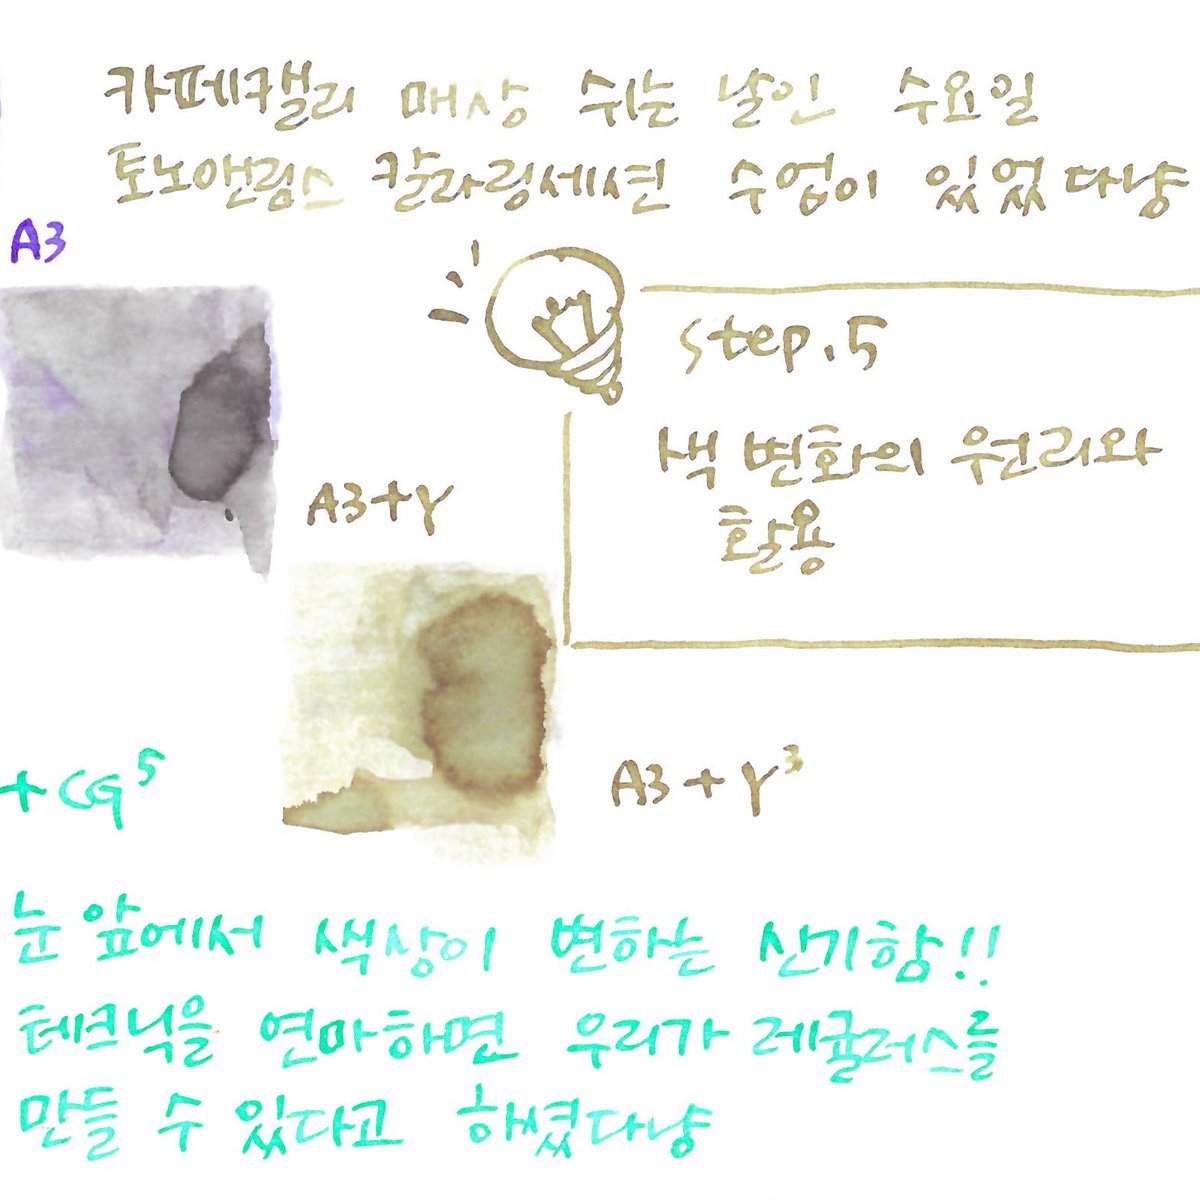 카페캘리 매상 쉬는 날인 수요일
토노앤림스 칼라링세션 수업이 있었다냥
A3
step.5
색 변화의 원리와
활용
A3+Y
A3+Y³
+CG⁵
눈 앞에서 색상이 변하는 신기함!!
테크닉을 연마하면 우리가 레귤러스를
만들 수 있다고 하셨다냥